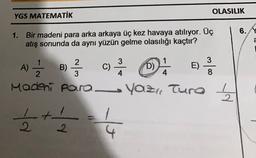 YGS MATEMATİK
OLASILIK
1. Bir madeni para arka arkaya üç kez havaya atılıyor. Üç
atış sonunda da aynı yüzün gelme olasılığı kaçtır?
A) 1/2 B) 2/3 C) 3/4 D) 1/4 E) 3/8
Madeni Para → Yazı, Tura 1/2
1/2 + 1/2 = 1/4
6.